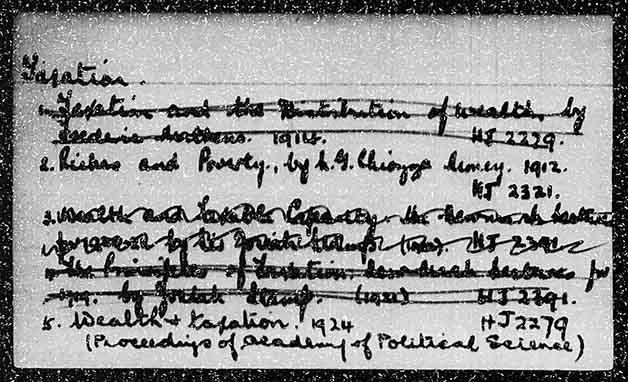 Taxation.
1. Taxation and the Distribution of Wealth, by
Frederic Mathews. 1914. HJ 2279.
2. Riches and Poverty, by L. G. Chiozza Money. 1912.
HJ 2321.
3. Wealth and Taxable Capacity. the Newmarch lectures
by Josiah Stamp. HJ 2391
the Principles of Taxation. Newmarch Lectures for
1919. by Josiah Stamp. (1921) HJ 2391.
5. Wealth + taxation. 1924 HJ2279
(Proceedings of academy of Political Science)